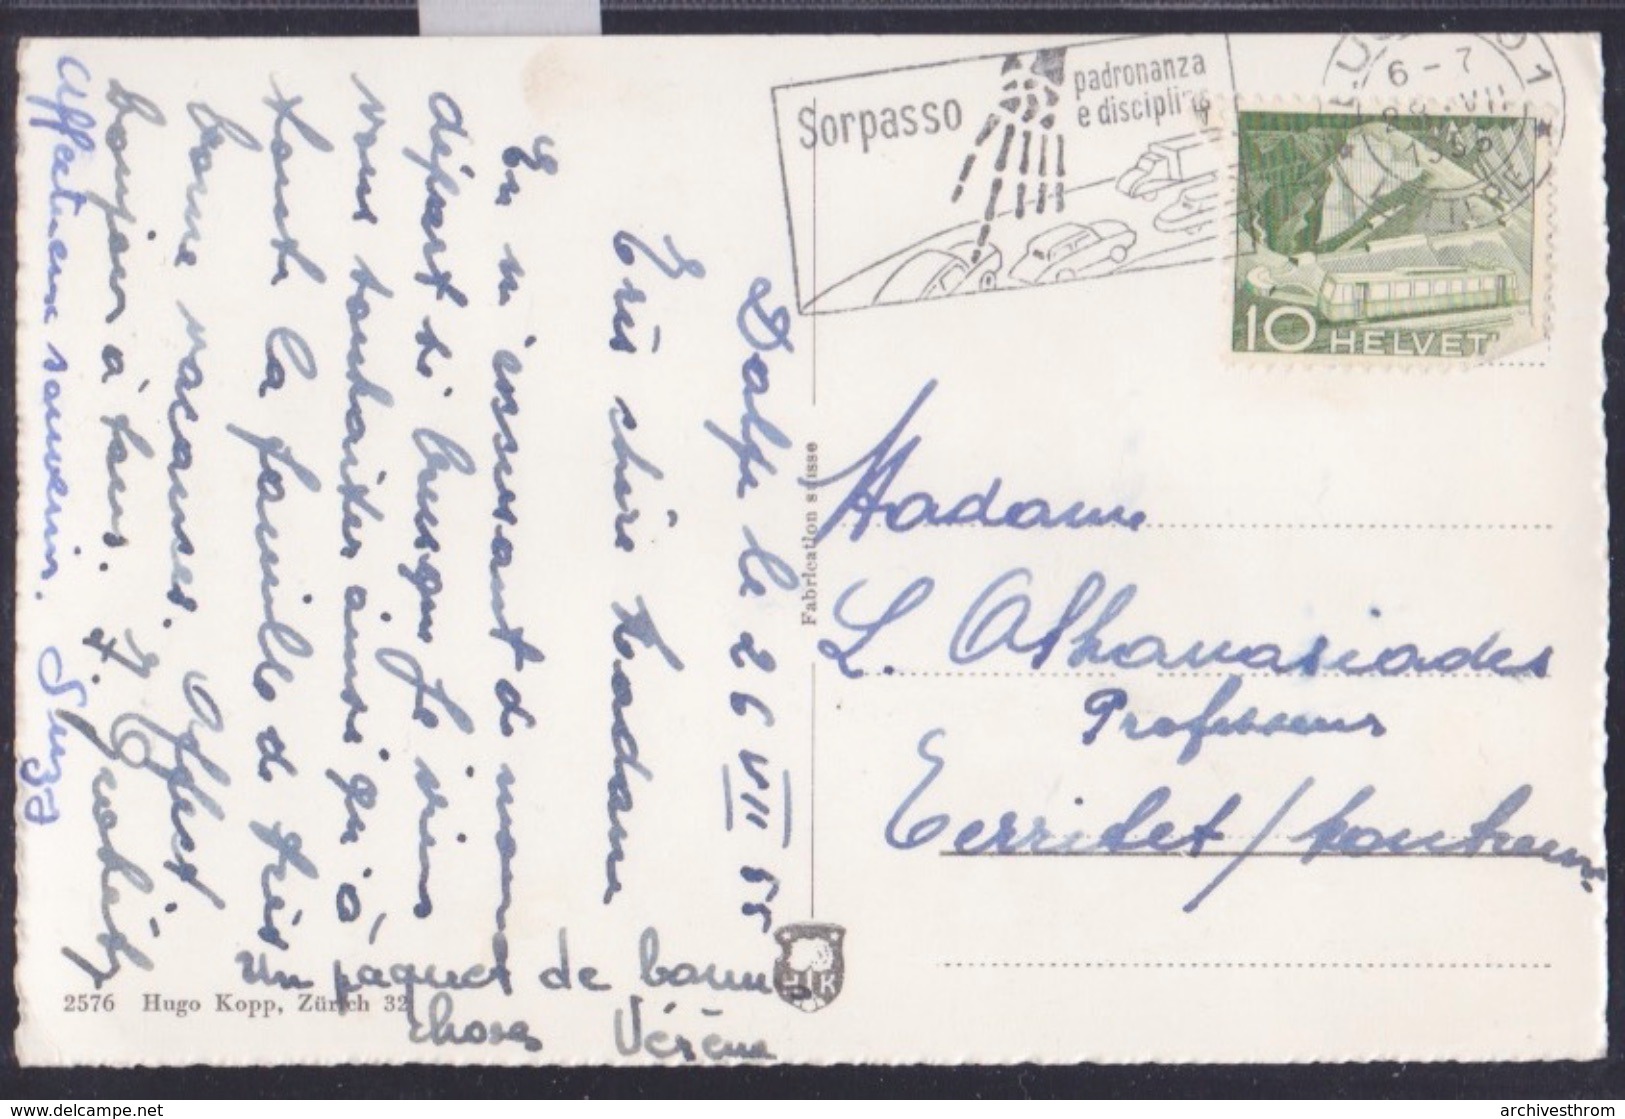 Sorpasso
padronanza
e disciplina
6 - 7
1
10 HELVETI
Dalpe le 26 VII 55
Très chère Madame
En m'excusant de mon
départ si brusque je viens
vous souhaiter ainsi qu'à
toute la famille de très
bonnes vacances.
bonjour à tous.
Affectueux souvenir. Suzy
un paquet de bonnes
choses Vérène
Fabrication suisse
Madame
L. Athanasiades
Professeur
Territet / Montreux
HK
2576 Hugo Kopp, Zürich 32
archivesthrom
delcampe.net